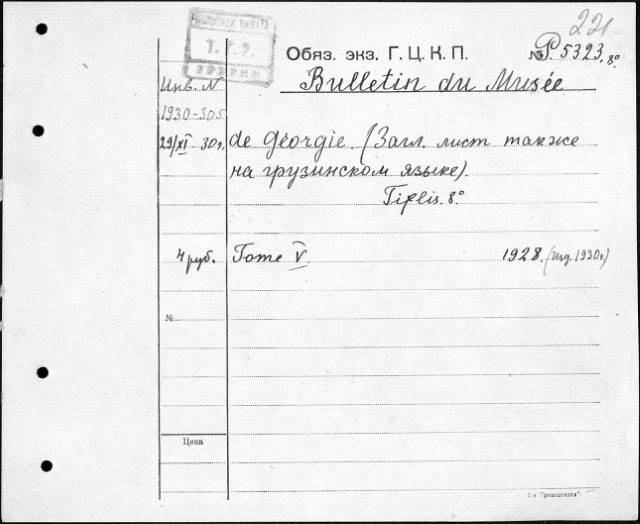 221
Т. Г. У.
ГРУЗИИ
Обяз. экз. Г.Ц.К.П.
№ P. 5323. 8°
Инв. N
Bulletin du Musée
1930-305
29/XI 30 г. de Géorgie. (Загл. лист также
на грузинском языке).
Tiflis. 8°
4 руб. Tome V. 1928. (изд. 1930 г.)
№
Цена